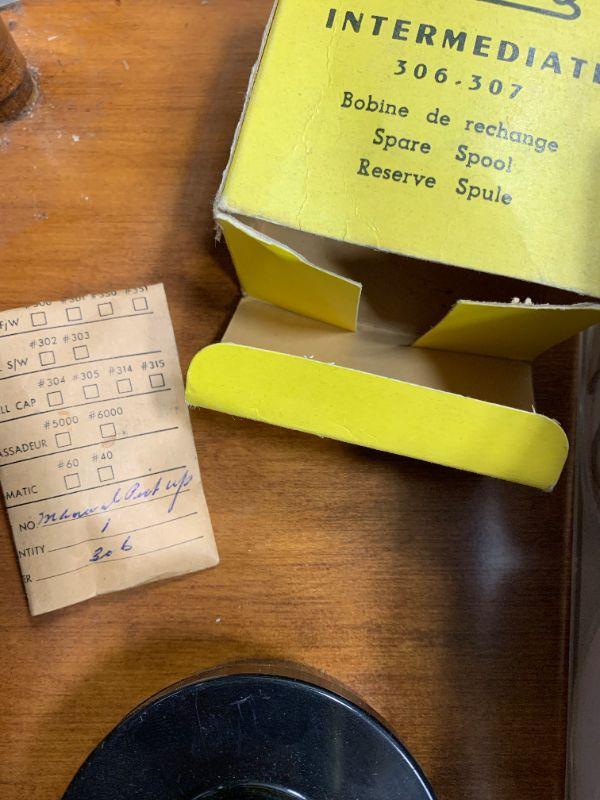 INTERMEDIAT
306-307
Bobine de rechange
Spare Spool
Reserve Spule
#301 #350 #351
F/W
#302 #303
S/W
#304 #305 #314 #315
LL CAP
#5000 #6000
ASSADEUR
#60 #40
MATIC
NO. Manual Pick up
NTITY 1
ER 306